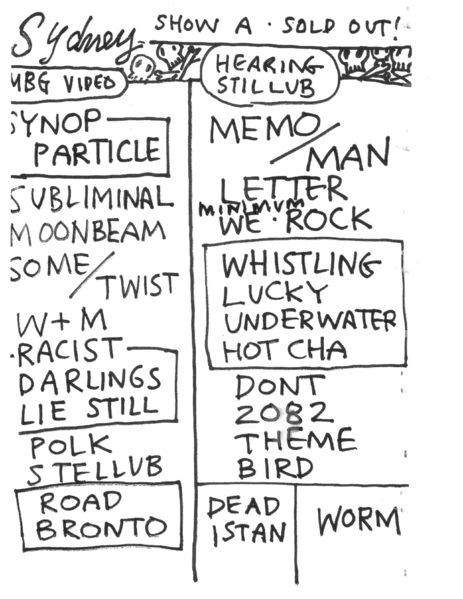 Sydney
SHOW A · SOLD OUT!
MBG VIDEO
SYNOP
PARTICLE
SUBLIMINAL
MOONBEAM
SOME/
TWIST
W+M
·RACIST
DARLINGS
LIE STILL
POLK
STELLUB
ROAD
BRONTO
HEARING
STILLUB
MEMO/
MAN
LETTER
MINIMUM
WE · ROCK
WHISTLING
LUCKY
UNDERWATER
HOT CHA
DONT
2082
THEME
BIRD
DEAD
ISTAN
WORM